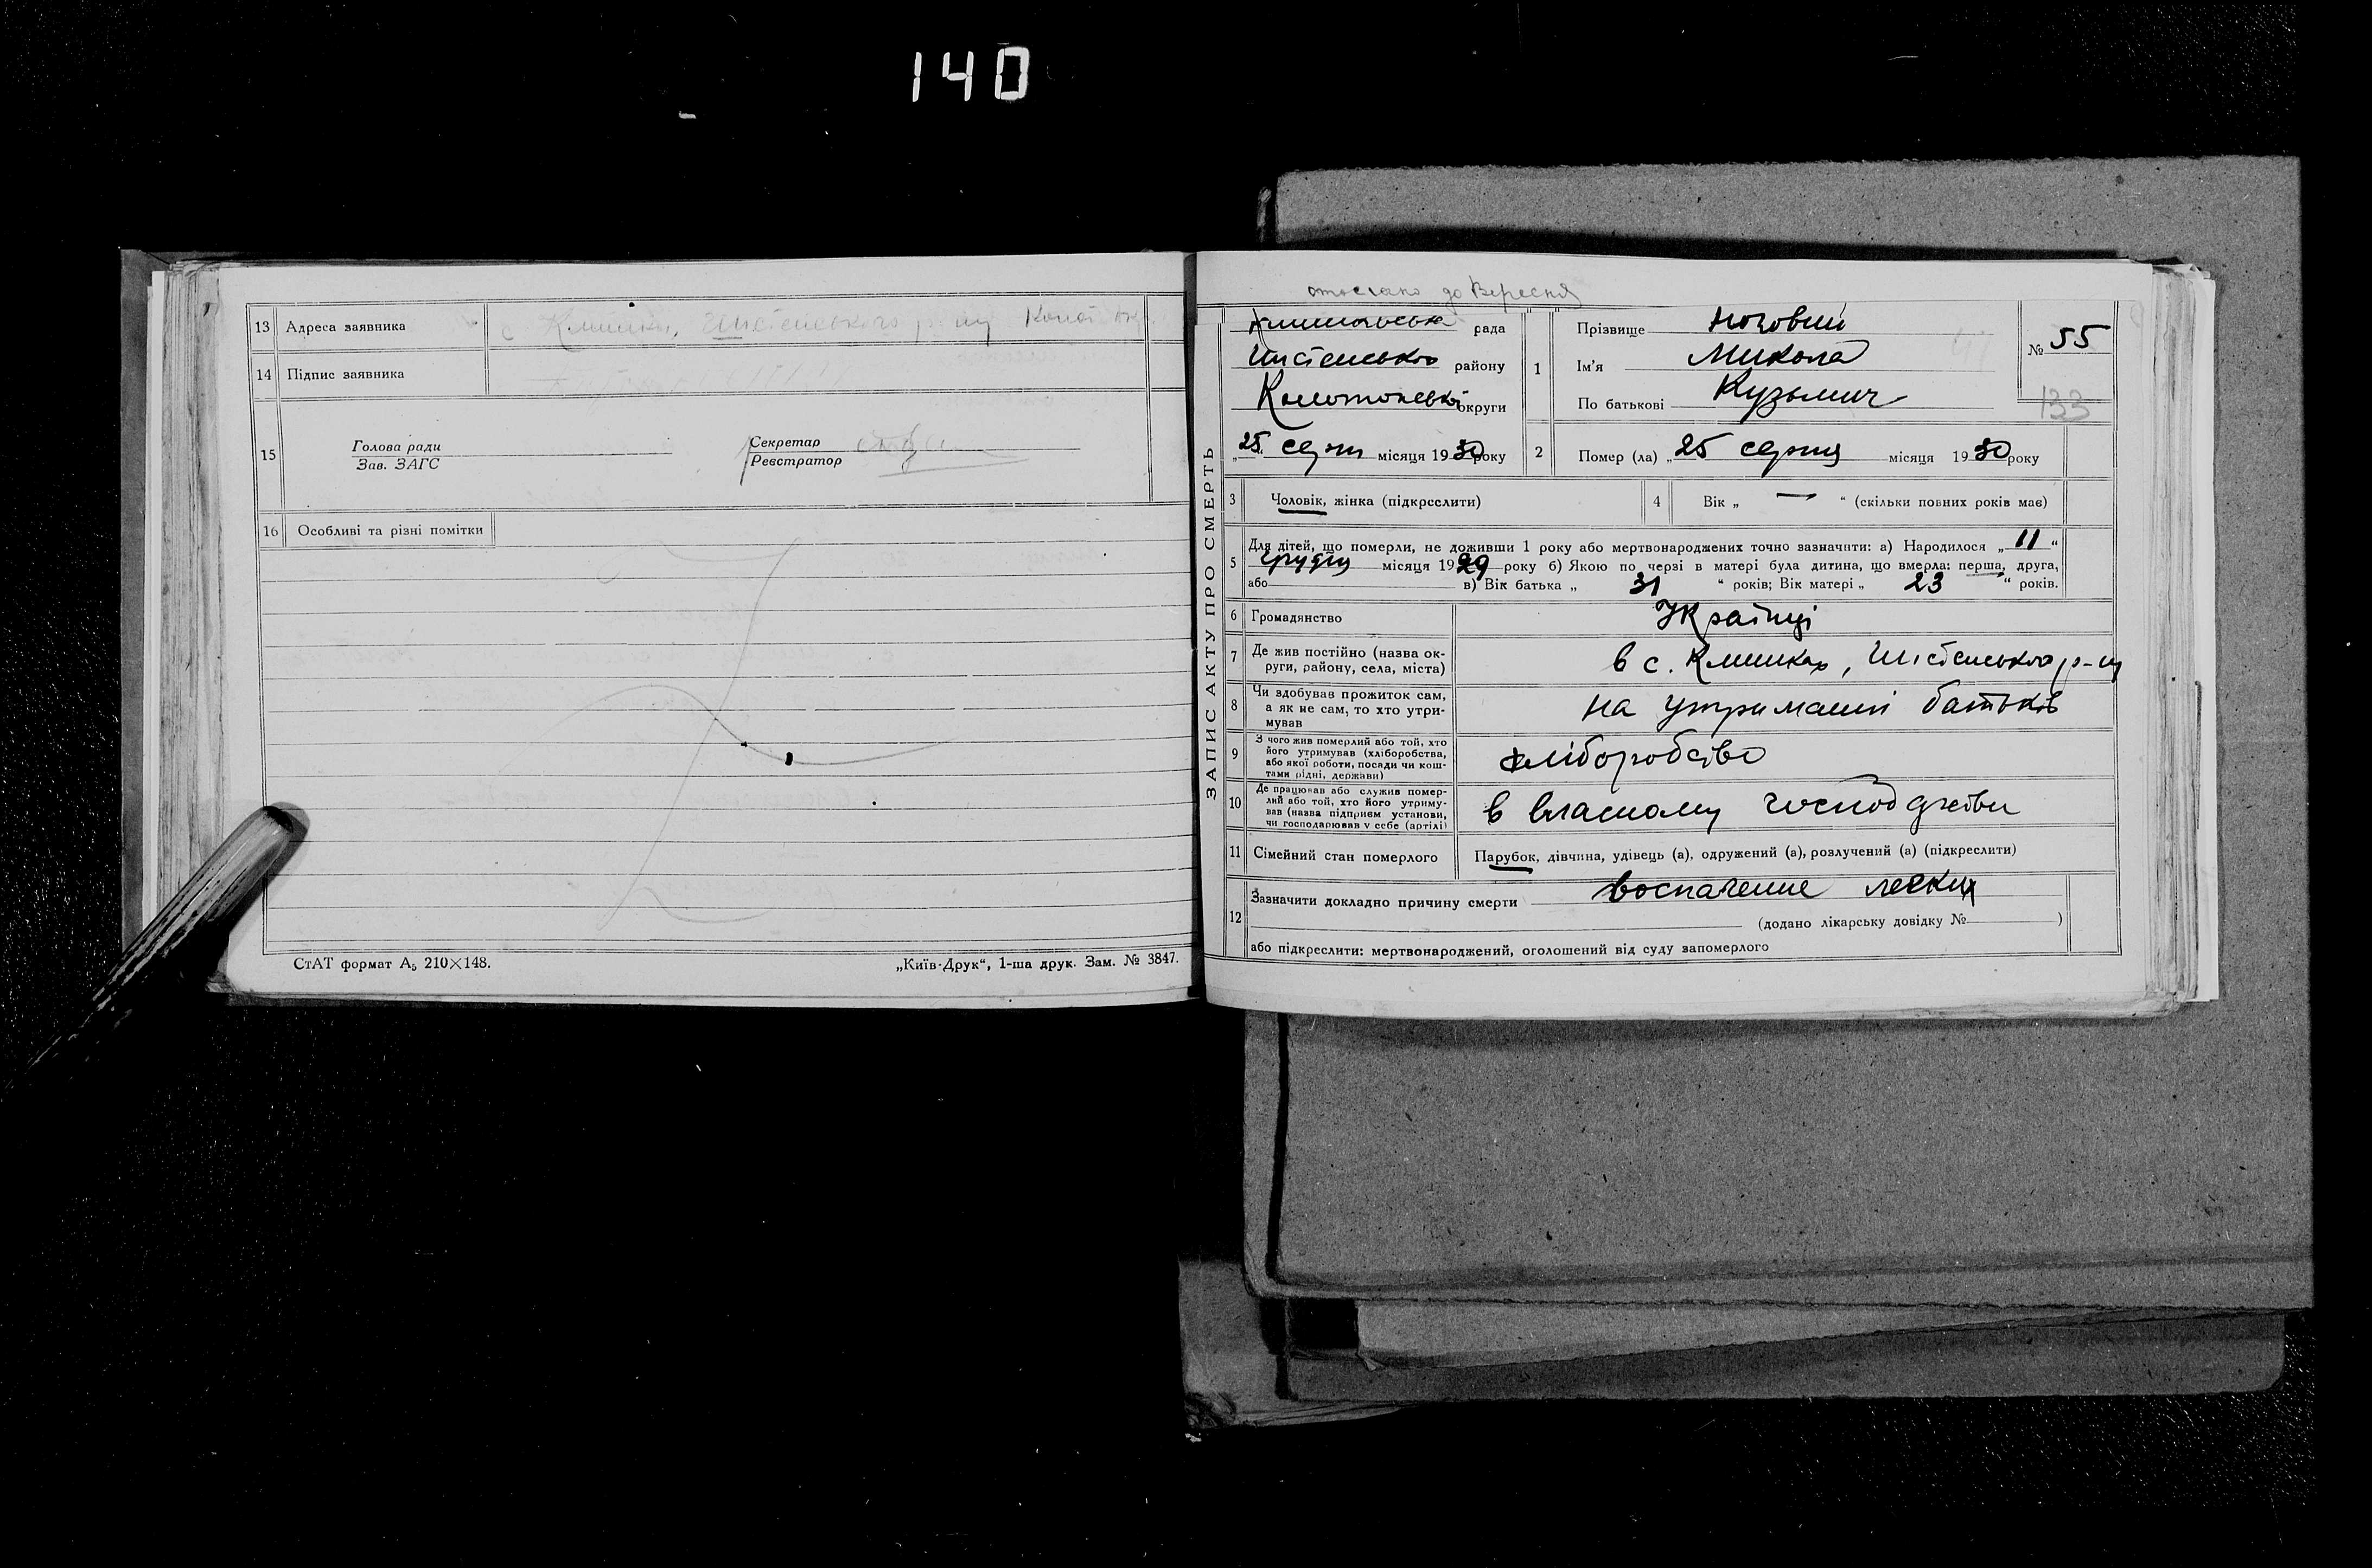 140
13 Адреса заявника с Климки,
14 Підпис заявника
15 Голова ради
Зав. ЗАГС
Секретар
Реєстратор
16 Особливі та різні помітки
СтАТ формат А₅ 210×148.
„Київ-Друк“, 1-ша друк. Зам. № 3847.
до Вересня
ЗАПИС АКТУ ПРО СМЕРТЬ
рада
району
округи
„25“ серпн місяця 1930 року
1 Прізвище
Ім'я Микола
По батькові Кузьмич
№ 55
133
2 Помер (ла) „25 серпня місяця 1930 року
3 Чоловік, жінка (підкреслити)
4 Вік „ — “ (скільки повних років має)
5 Для дітей, що померли, не доживши 1 року або мертвонароджених точно зазначити: а) Народилося „11“
грудня місяця 1929 року б) Якою по черзі в матері була дитина, що вмерла: перша, друга,
або в) Вік батька „ 31 “ років; Вік матері „ 23 “ років.
6 Громадянство Українці
7 Де жив постійно (назва ок-
руги, району, села, міста) в с. Климках, р-ну
8 Чи здобував прожиток сам,
а як не сам, то хто утри-
мував на утриманні батьків
9 З чого жив померлий або той, хто
його утримував (хліборобства,
або якої роботи, посади чи кош-
тами рідні, держави) хліборобство
10 Де працював або служив помер-
лий або той, хто його утриму-
вав (назва підприєм установи,
чи господарював у себе (артілі) в власному
11 Сімейний стан померлого Парубок, дівчина, удівець (а), одружений (а), розлучений (а) (підкреслити)
12 Зазначити докладно причину смерти воспаление легких
(додано лікарську довідку № )
або підкреслити: мертвонароджений, оголошений від суду запомерлого